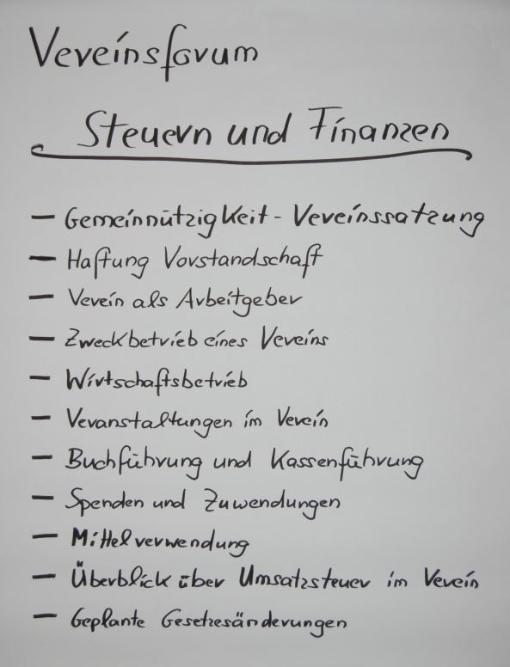 Vereinsforum
Steuern und Finanzen
- Gemeinnützigkeit - Vereinssatzung
- Haftung Vorstandschaft
- Verein als Arbeitgeber
- Zweckbetrieb eines Vereins
- Wirtschaftsbetrieb
- Veranstaltungen im Verein
- Buchführung und Kassenführung
- Spenden und Zuwendungen
- Mittelverwendung
- Überblick über Umsatzsteuer im Verein
- Geplante Gesetzesänderungen